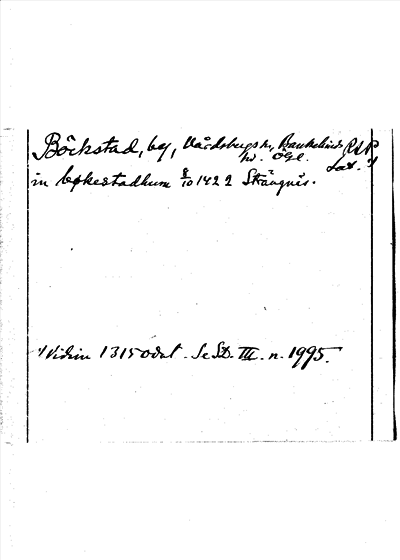 Böckstad, by, Vårdsbergs sn, Bankekinds RAP
hd. Ögl. Lat. 1)
in bøkestadhum 8/10 1422 Strängnäs.
1) Vidim 1315 odat. Se SD. III. n. 1995.